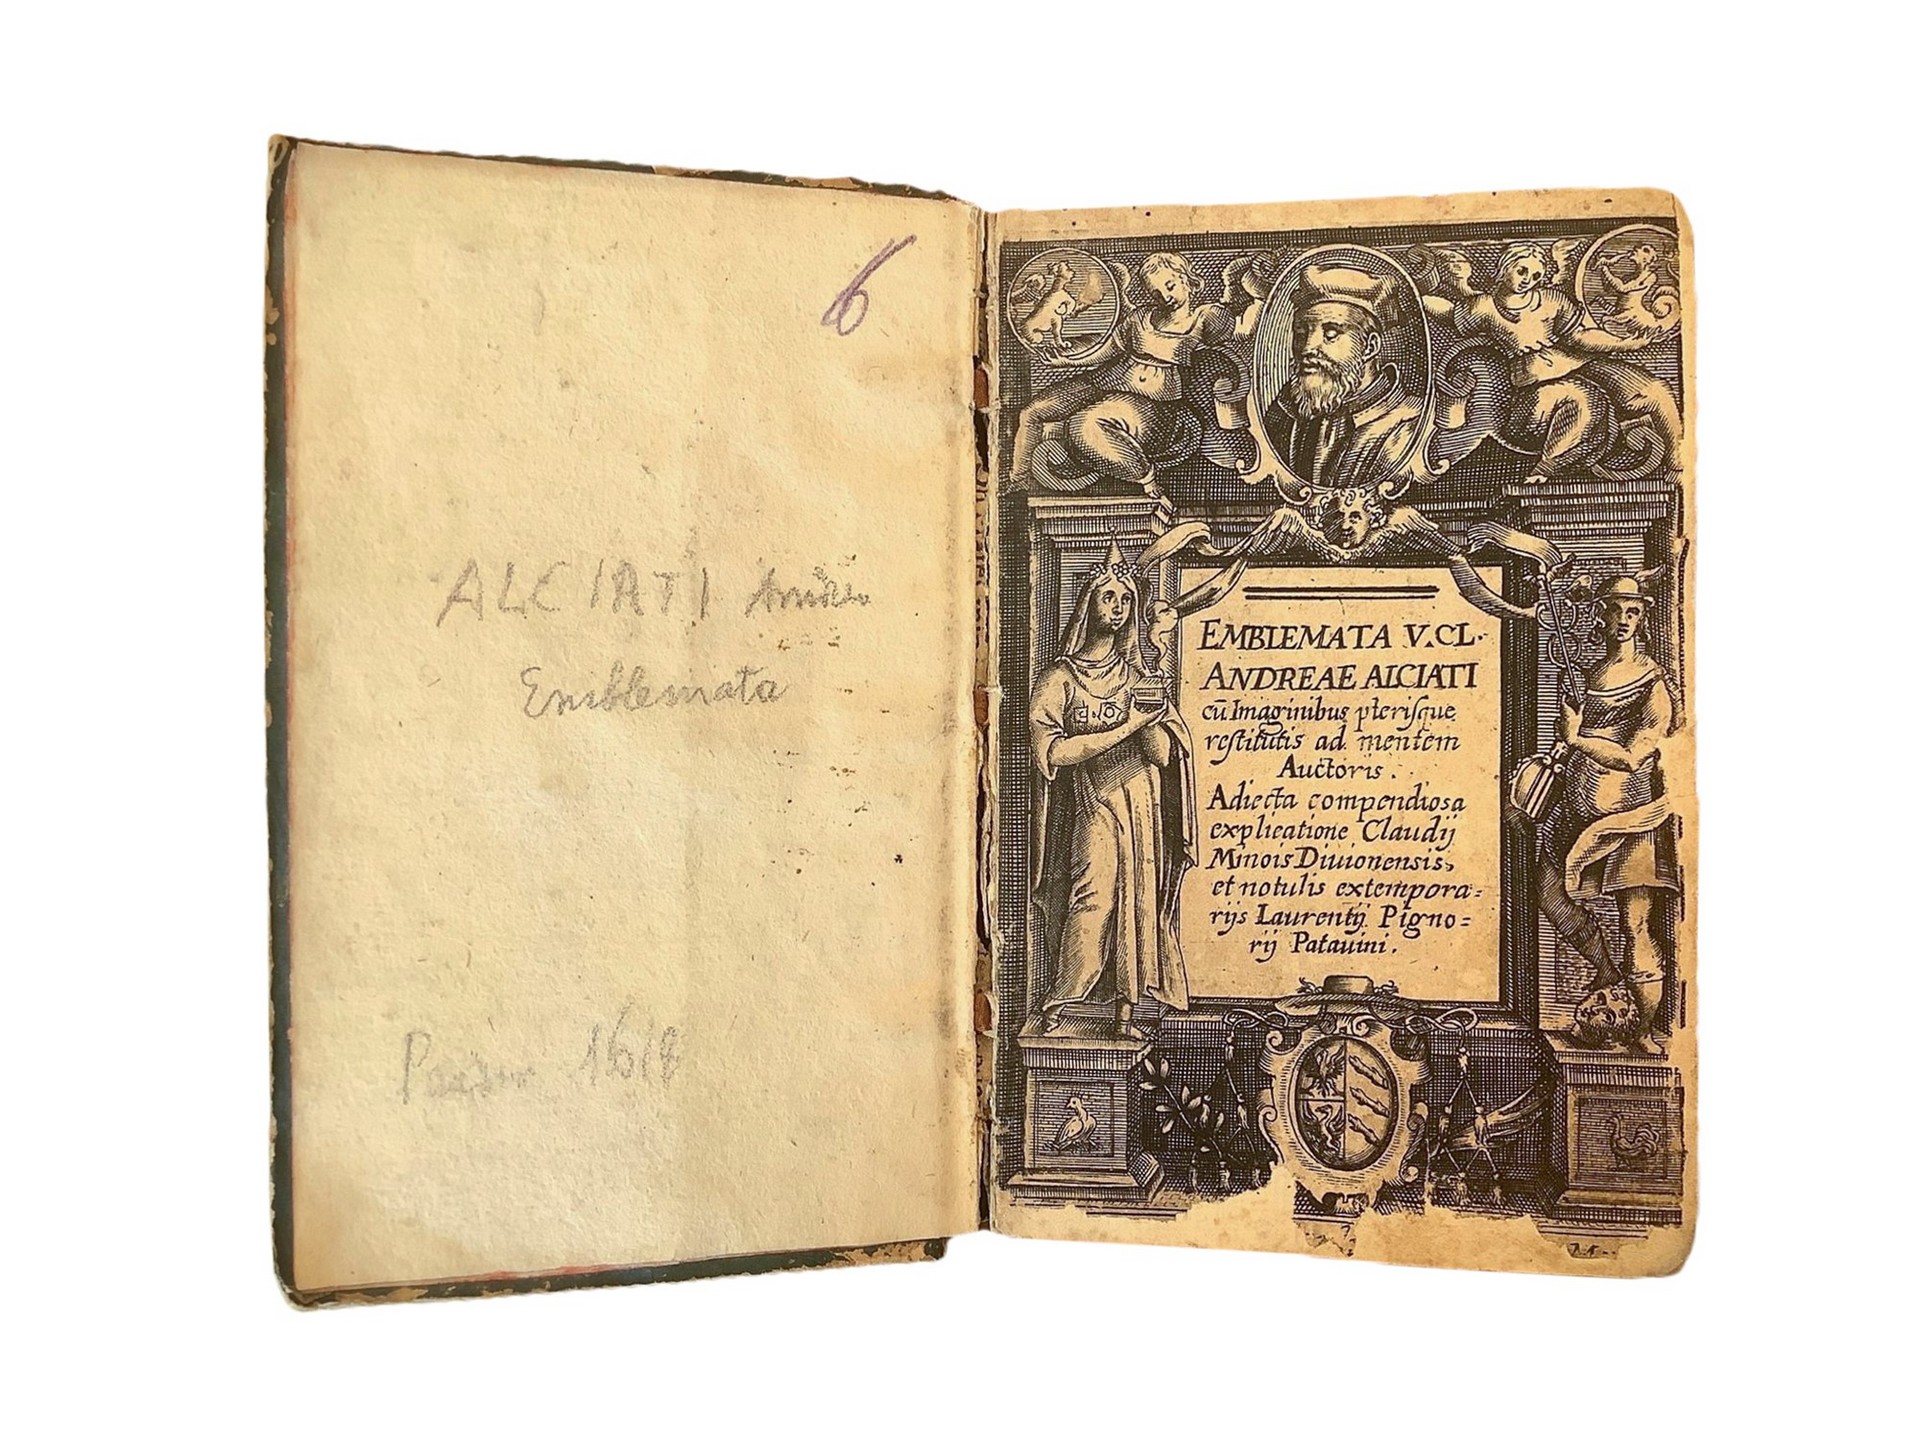 6
ALCIATI Andrea
Emblemata
1618
EMBLEMATA V.CL.
ANDREAE ALCIATI
cū Imaginibus plerisque
restitutis ad mentem
Auctoris.
Adiecta compendiosa
explicatione Claudij
Minois Diuionensis,
et notulis extempora=
rijs Laurentij Pigno=
rij Patauini.